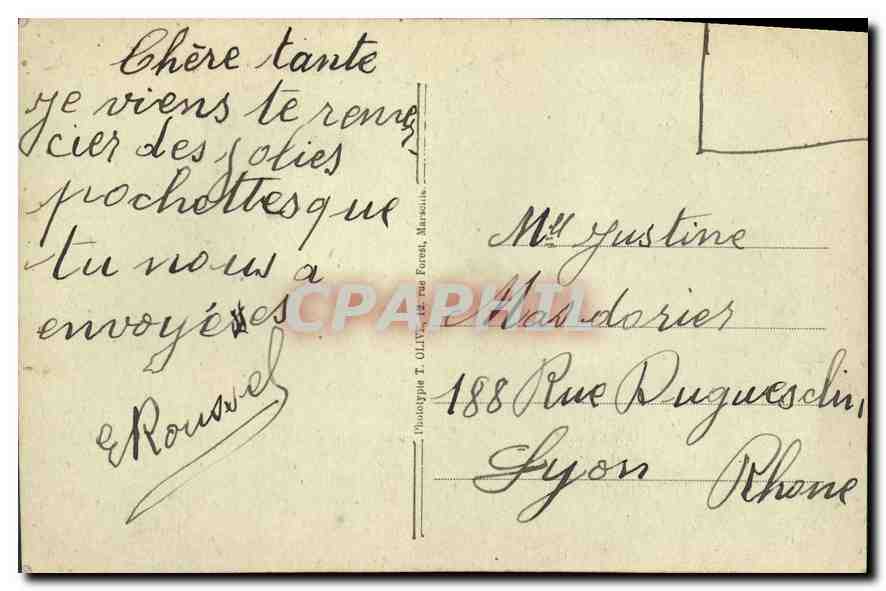 Chère tante
je viens te remer
cier des jolies
pochettes que
tu nous a
envoyées
E Roussel
Phototypie T. OLIVE, 12, rue Forest, Marseille
Mll Justine
Masdorier
188 Rue Duguesclin,
Lyon Rhone
CPAPHIL